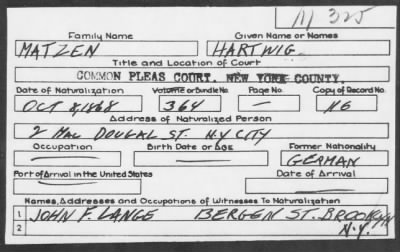 M 325
Family Name Given Name or Names
MATZEN HARTWIG
Title and Location of Court
COMMON PLEAS COURT, NEW YORK COUNTY.
Date of Naturalization Volume or Bundle No. Page No. Copy of Record No.
OCT 8, 1868 364 — 116
Address of Naturalized Person
2 MAC DOUGAL ST. N.Y CITY
Occupation Birth Date or Age Former Nationality
GERMAN
Port of Arrival in the United States Date of Arrival
Names, Addresses and Occupations of Witnesses To Naturalization
1 JOHN F. LANGE BERGEN ST. BROOKLYN
2 N.Y.